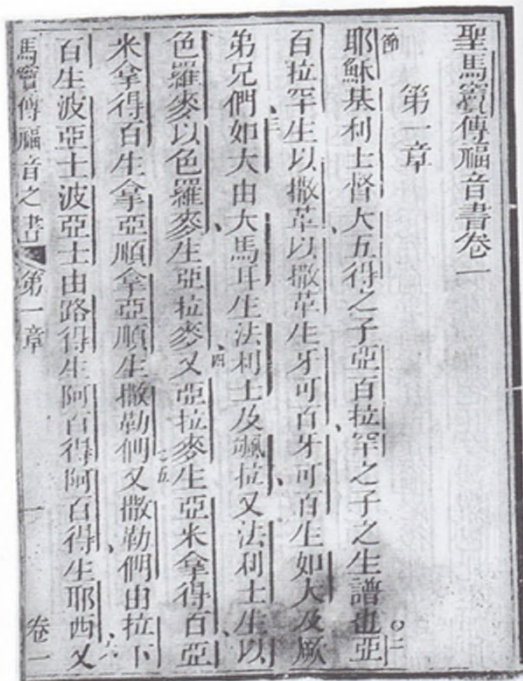 聖馬竇傳福音書卷一
第一章
一節耶穌基利士督大五得之子亞百拉罕之子之生譜也〇二亞
百拉罕生以撒革以撒革生牙可百牙可百生如大及厥
弟兄們三如大由大馬耳生法利士及颯拉又法利士生以
色羅麥以色羅麥生亞拉麥四又亞拉麥生亞米拿得百亞
米拿得百生拿亞順拿亞順生撒勒們五又撒勒們由拉下
百生波亞士波亞士由路得生阿百得阿百得生耶西六又
馬竇傳福音之書 第一章 一 卷一